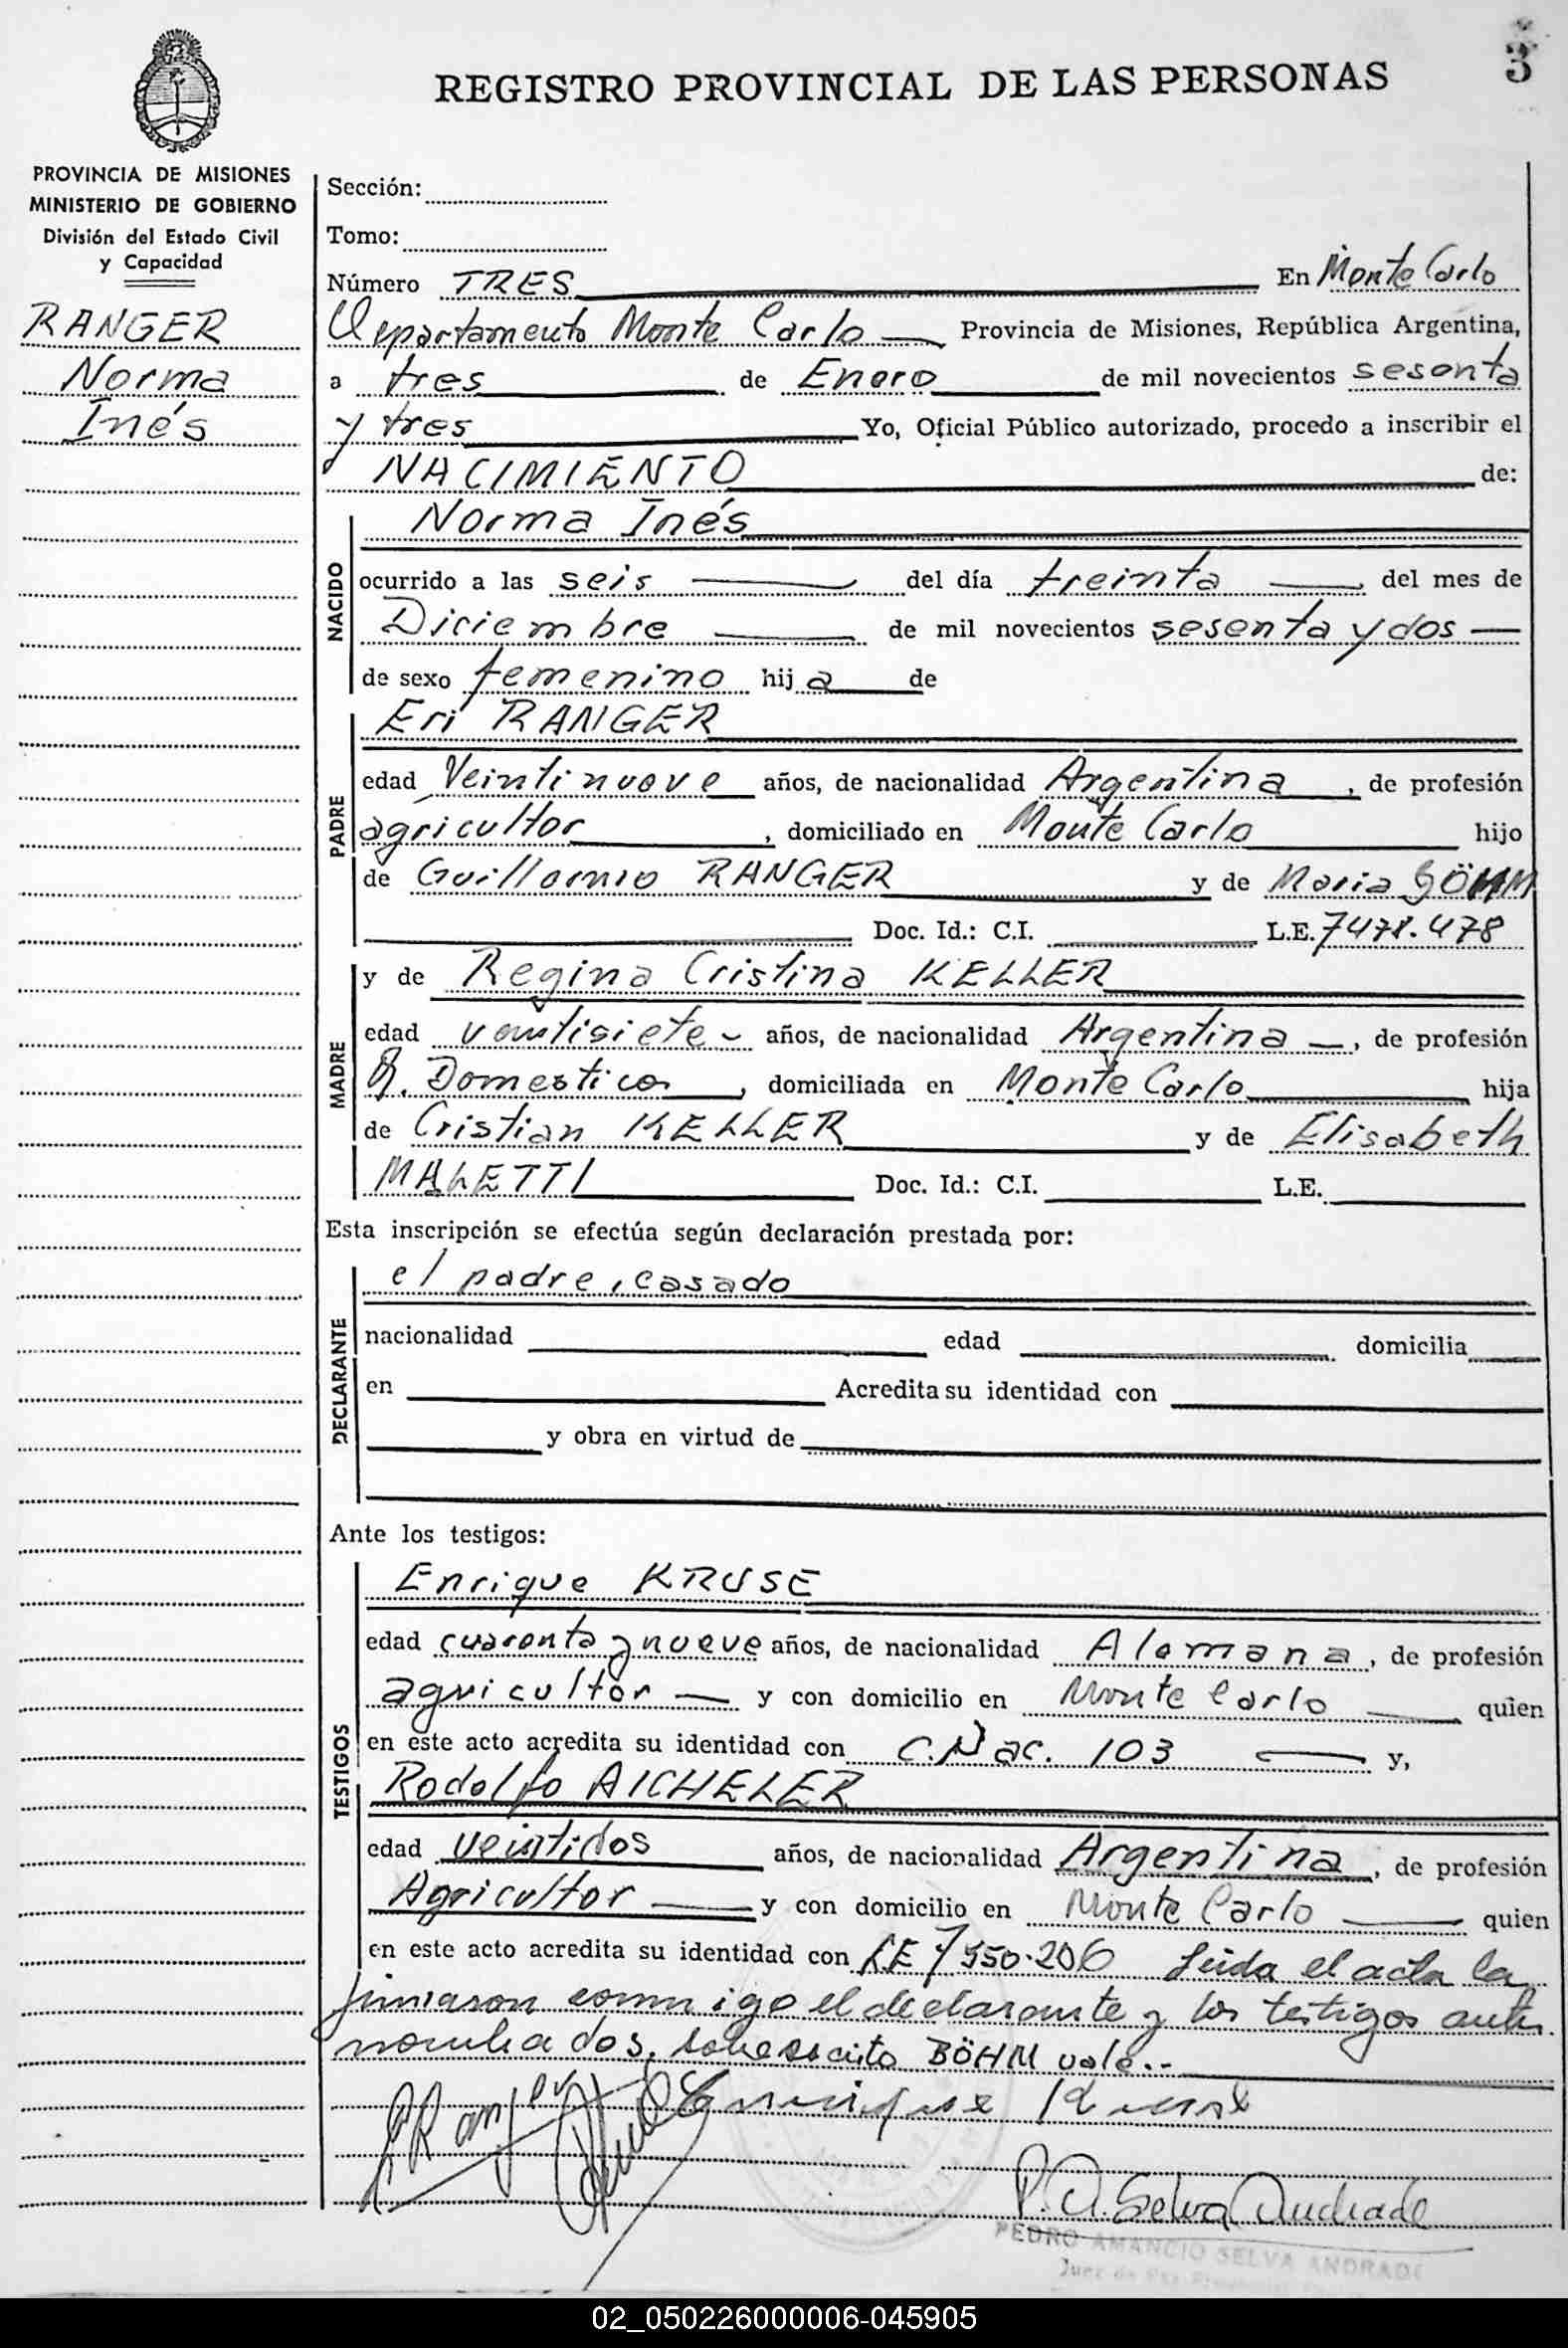 3
REGISTRO PROVINCIAL DE LAS PERSONAS
PROVINCIA DE MISIONES
MINISTERIO DE GOBIERNO
División del Estado Civil
y Capacidad
RANGER
Norma
Inés
Sección:
Tomo:
Número TRES En Monte Carlo
Departamento Monte Carlo Provincia de Misiones, República Argentina,
a tres de Enero de mil novecientos sesenta
y tres Yo, Oficial Público autorizado, procedo a inscribir el
NACIMIENTO de:
NACIDO
Norma Inés
ocurrido a las seis del día treinta del mes de
Diciembre de mil novecientos sesenta y dos
de sexo femenino hija de
PADRE
Eri RANGER
edad Veintinueve años, de nacionalidad Argentina, de profesión
agricultor, domiciliado en Monte Carlo hijo
de Guillermo RANGER y de Maria BÖHM
Doc. Id.: C.I. L.E. 7478.478
MADRE
y de Regina Cristina KELLER
edad veintisiete años, de nacionalidad Argentina, de profesión
Q. Domesticos, domiciliada en Monte Carlo hija
de Cristian KELLER y de Elisabeth
MALETTI Doc. Id.: C.I. L.E.
Esta inscripción se efectúa según declaración prestada por:
DECLARANTE
el padre, casado
nacionalidad edad domicilia
en Acredita su identidad con
y obra en virtud de
Ante los testigos:
TESTIGOS
Enrique KRUSE
edad cuarenta y nueve años, de nacionalidad Alemana, de profesión
agricultor y con domicilio en Monte Carlo quien
en este acto acredita su identidad con C.Nac. 103 y,
Rodolfo AICHELER
edad veintidos años, de nacionalidad Argentina, de profesión
Agricultor y con domicilio en Monte Carlo quien
en este acto acredita su identidad con LE 7550.206 Leida el acta la
firmaron conmigo el declarante y los testigos ante
nombrados, sobrescrito BÖHM vale.-
E Ranger Enrique Kruse
P. A. Selva Andrade
PEDRO AMANCIO SELVA ANDRADE
Juez de Paz
02_050226000006-045905